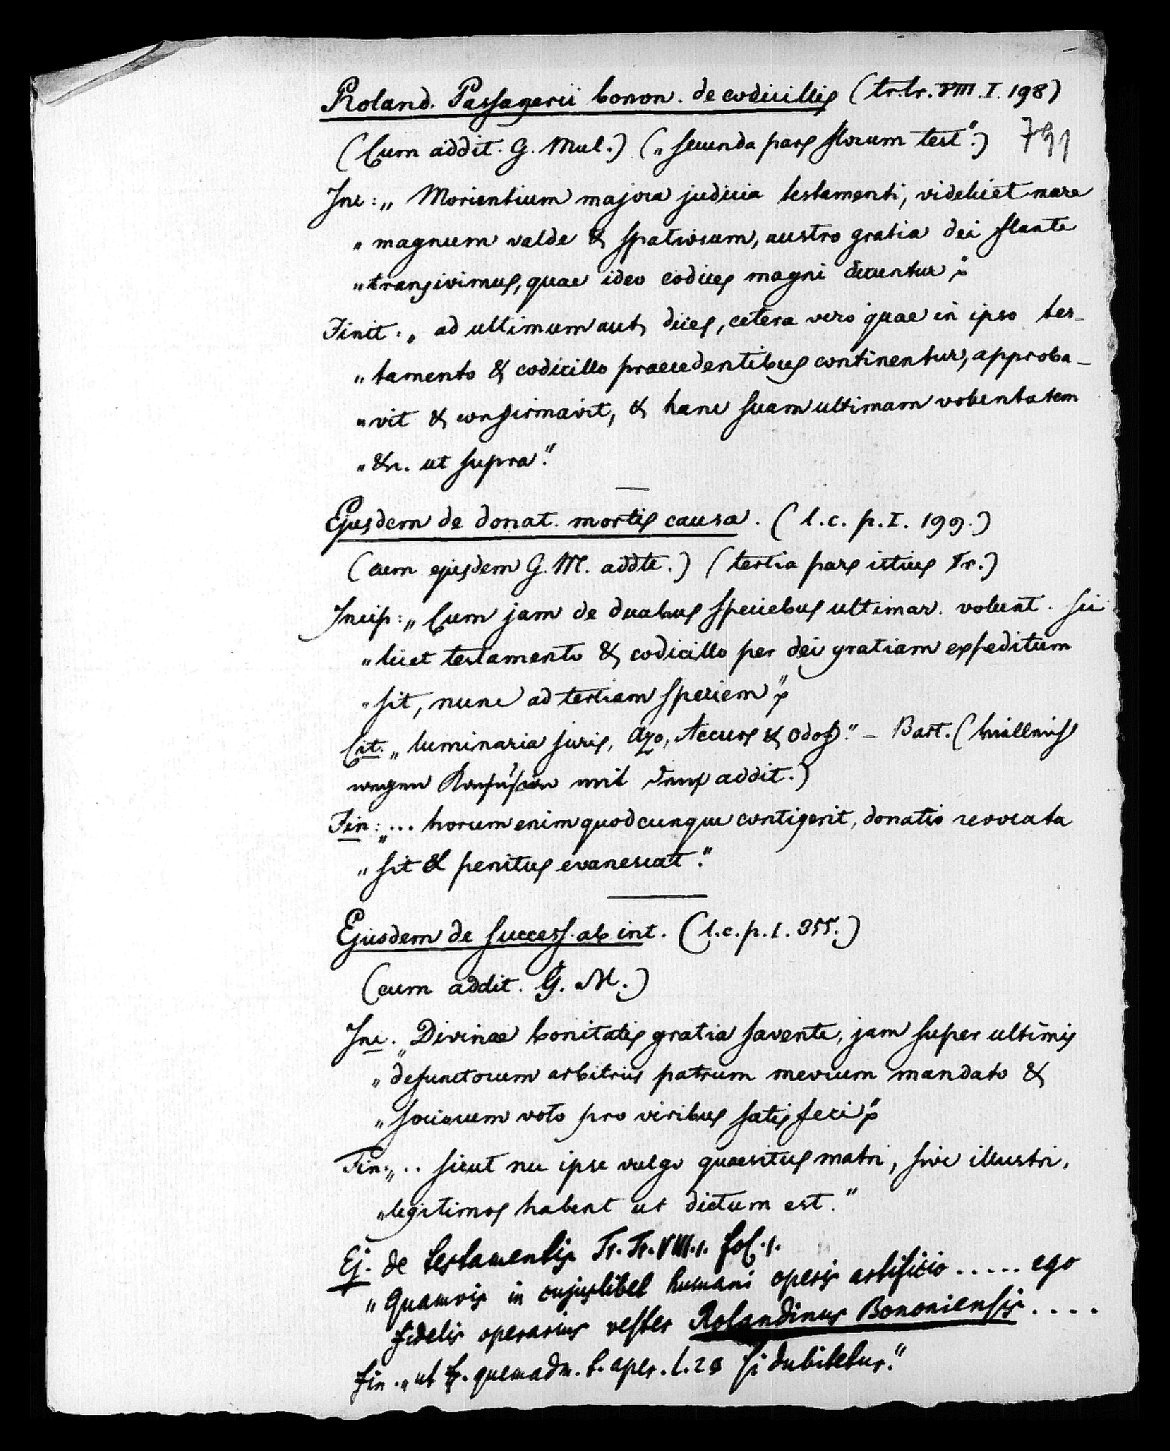 Roland. Passagerii bonon. de codicillis (tr. tr. VIII. I. 198)
(Cum addit. G. Mul.) („secunda pars florum test“.)
Inc: „Morientium majora judicia testamenti, videlicet mare
„magnum valde & spatiosum, austro gratia dei flante
„transivimus, quae ideo codices magni dicuntur“;
Finit. „ad ultimum aut, dices, cetera vero quae in ipso tes-
„tamento & codicillo praecedentibus continentur, approba-
„vit & confirmavit, & hanc suam ultimam voluntatem
„&c. ut supra“.
Ejusdem de donat. mortis causa. (l. c. p. I. 199.)
(cum ejusdem G. M. addit.) (tertia pars istius Tr.)
Incip: „Cum jam de duabus speciebus ultimar. volunt. sci
„licet testamento & codicillo per dei gratiam expeditum
„sit, nunc ad tertiam speciem“;
Cit. „luminaria juris, Azo, Accurs & Odof“. – Bart. (vielleicht
wegen Konfusion mit den addit.)
Fin: „... horum enim quodcunque contigerit, donatio revocata
„sit & penitus evanescat“.
Ejusdem de success. ab int. (l. c. p. I. 355.)
(cum addit. G. M.)
Inc. „Divinae bonitatis gratia favente, jam super ultimis
„defunctorum arbitriis patrum meorum mandato &
„sociorum voto pro viribus satisfeci“;
Fin. „.. sicut nec ipse vulgo quaesitus matri, sive illustri,
„legitimos habent ut dictum est.“
Ej. de testamentis Tr. Tr. VIII. 1. fol. 1.
„Quamvis in cujuslibet humani operis artificio ..... ego
fidelis operarius vester Rolandinus Bononiensis ....
fin. „ut ff. quemadm. t. aper. l. 2 § si dubitetur.“